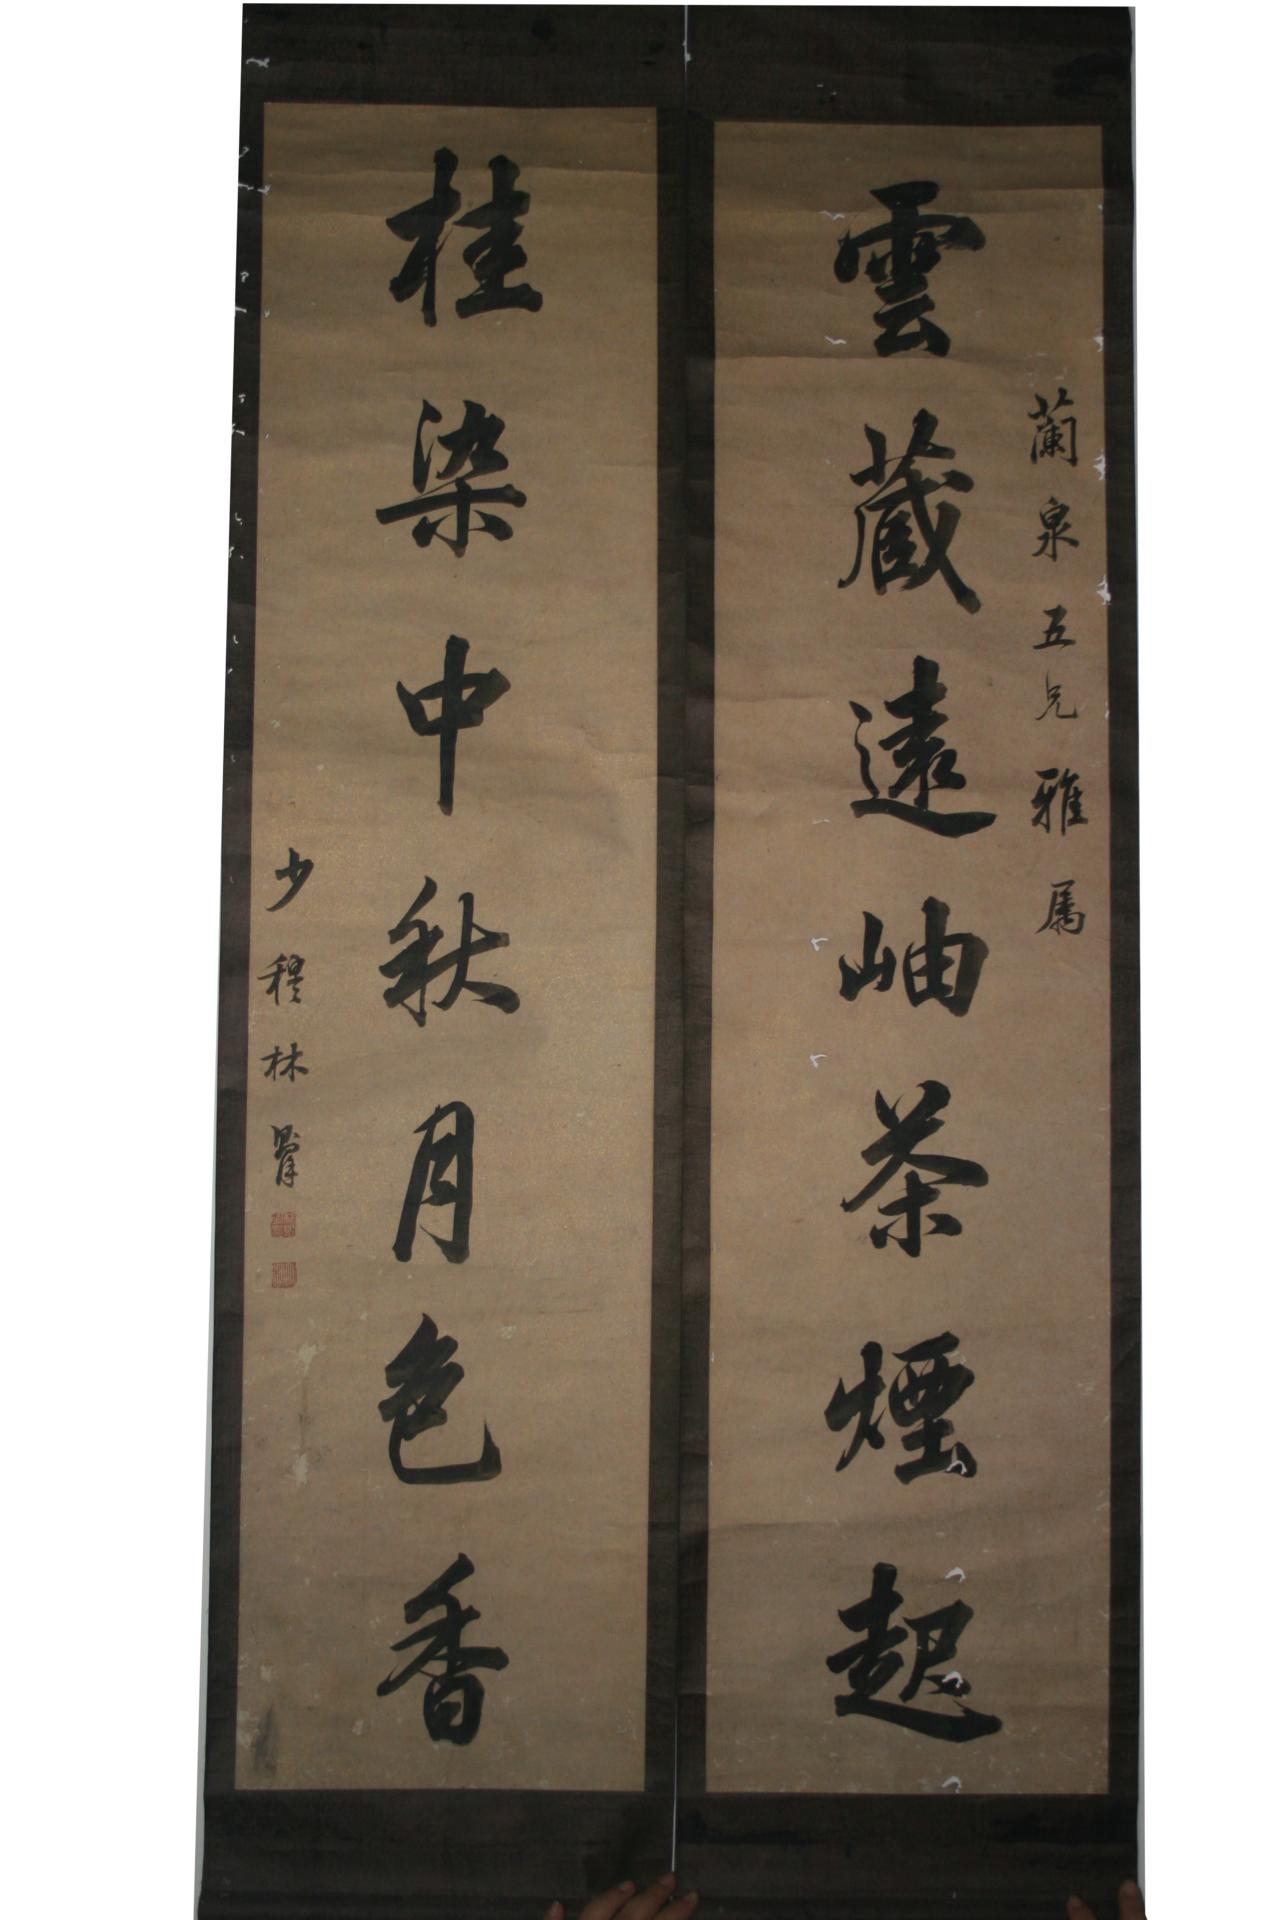 蘭泉五兄雅属
雲藏遠岫茶煙起
桂染中秋月色香
少穆林